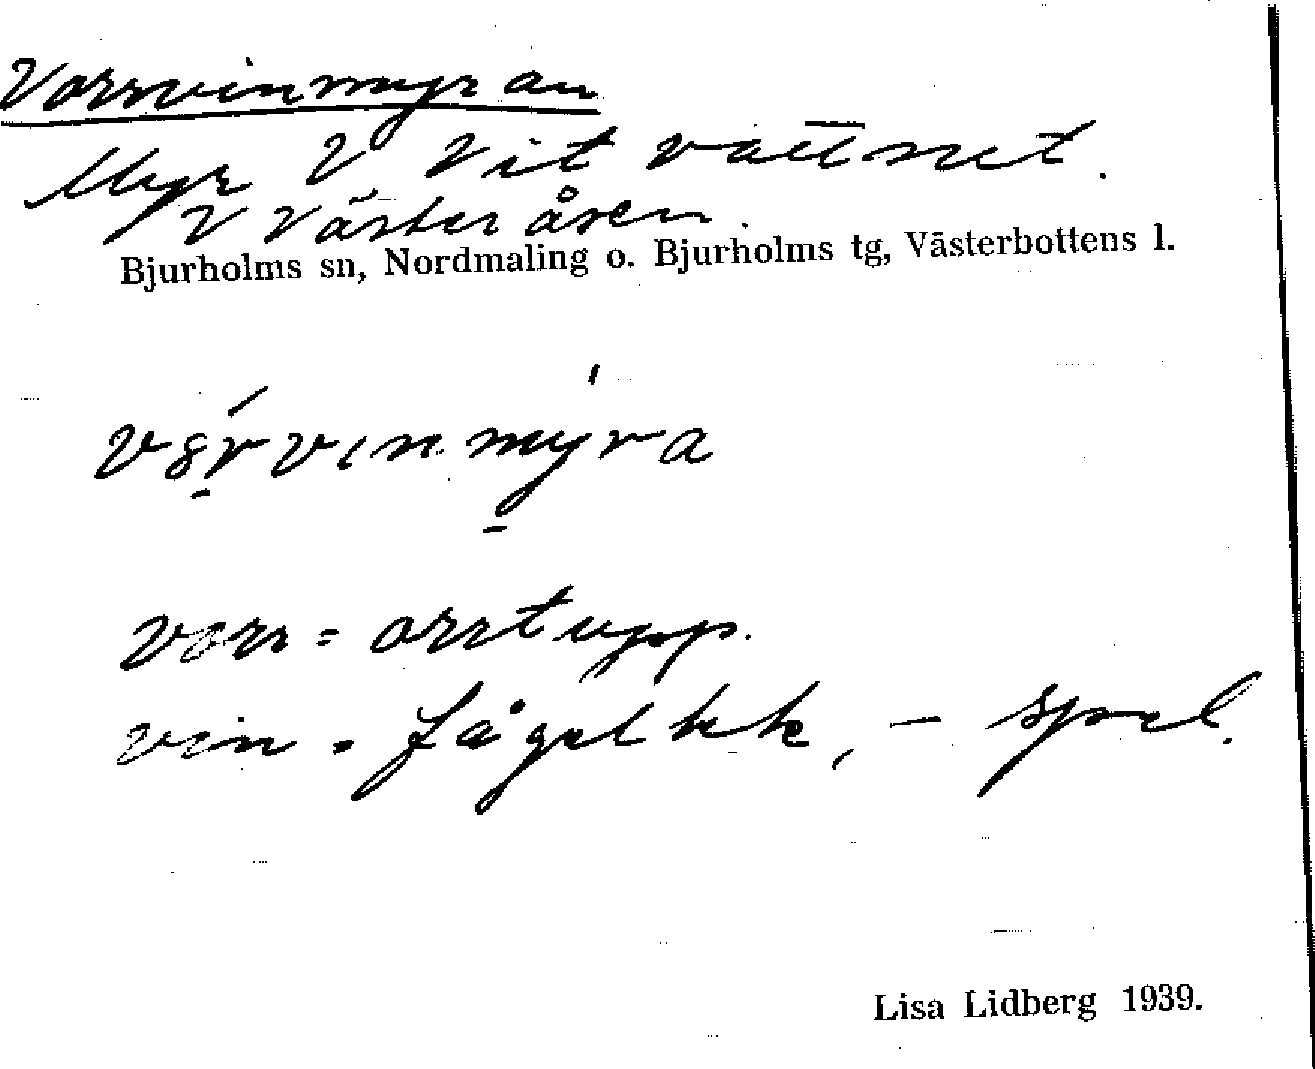 Vorrvinmyran
Myr V Vitvattnet.
V Västeråsen.
Bjurholms sn, Nordmaling o. Bjurholms tg, Västerbottens l.
vorr = orrtupp.
vin = fågellek, – spel.
Lisa Lidberg 1939.